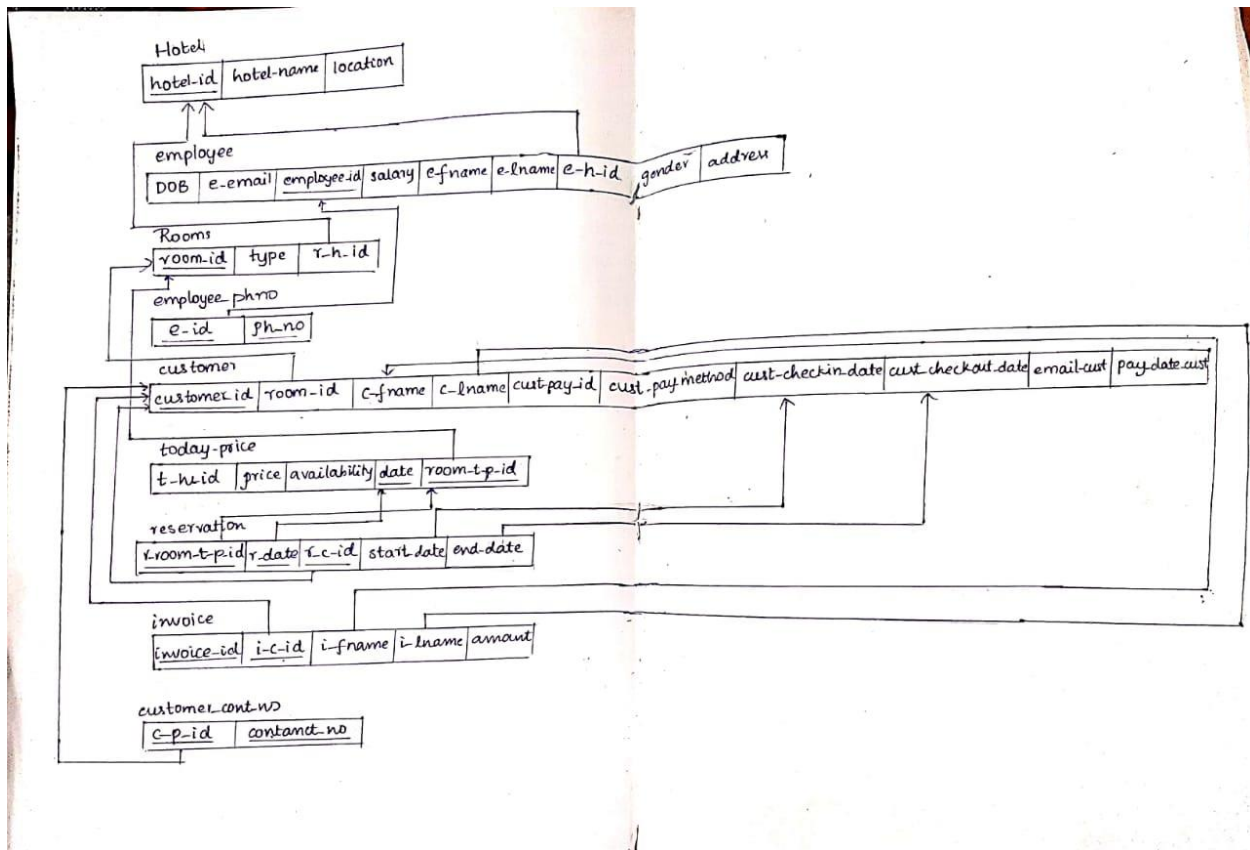 Hotel
hotel-id hotel-name location
employee
DOB e-email employee-id salary e-fname e-lname e-h-id gender address
Rooms
room-id type r-h-id
employee_phno
e-id ph-no
customer
customer-id room-id c-fname c-lname cust-pay-id cust-pay method cust-checkin-date cust checkout-date email-cust pay-date-cust
today-price
t-h-id price availability date room-t-p-id
reservation
r-room-t-p-id r-date r-c-id start date end-date
invoice
invoice-id i-c-id i-fname i-lname amount
customer_cont_no
c-p-id contanct-no